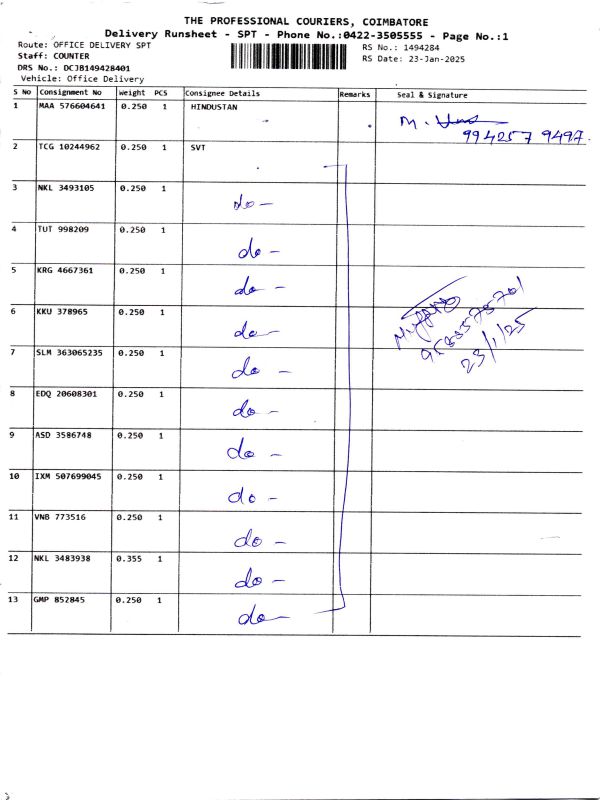 THE PROFESSIONAL COURIERS, COIMBATORE
Delivery Runsheet - SPT - Phone No.:0422-3505555 - Page No.:1
Route: OFFICE DELIVERY SPT
RS No.: 1494284
Staff: COUNTER
RS Date: 23-Jan-2025
DRS No.: DCJB149428401
Vehicle: Office Delivery
S No Consignment No Weight PCS Consignee Details Remarks Seal & Signature
1 MAA 576604641 0.250 1 HINDUSTAN
M.
994257 9497
2 TCG 10244962 0.250 1 SVT
3 NKL 3493105 0.250 1 do -
4 TUT 998209 0.250 1 do -
5 KRG 4667361 0.250 1 do -
6 KKU 378965 0.250 1 do -
7 SLM 363065235 0.250 1 do -
23/1/25
8 EDQ 20608301 0.250 1 do -
9 ASD 3586748 0.250 1 do -
10 IXM 507699045 0.250 1 do -
11 VNB 773516 0.250 1 do -
12 NKL 3483938 0.355 1 do -
13 GMP 852845 0.250 1 do -